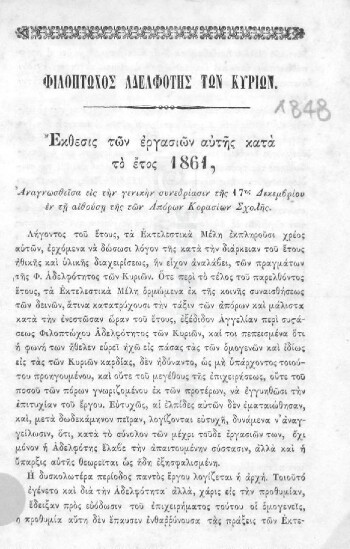 ΦΙΛΟΠΤΩΧΟΣ ΑΔΕΛΦΟΤΗΣ ΤΩΝ ΚΥΡΙΩΝ.
1848
Ἔκθεσις τῶν ἐργασιῶν αὐτῆς κατὰ
τὸ ἔτος 1861,
Ἀναγνωσθεῖσα εἰς τὴν γενικὴν συνεδρίασιν τῆς 17ης Δεκεμβρίου
ἐν τῇ αἰθούσῃ τῆς τῶν Ἀπόρων Κορασίων Σχολῆς.
Λήγοντος τοῦ ἔτους, τὰ Ἐκτελεστικὰ Μέλη ἐκπληροῦσι χρέος
αὑτῶν, ἐρχόμενα νὰ δώσωσι λόγον τῆς κατὰ τὴν διάρκειαν τοῦ ἔτους
ἠθικῆς καὶ ὑλικῆς διαχειρίσεως, ἣν εἶχον ἀναλάβει, τῶν πραγμάτων
τῆς Φ. Ἀδελφότητος τῶν Κυριῶν. Ὅτε περὶ τὸ τέλος τοῦ παρελθόντος
ἔτους, τὰ Ἐκτελεστικὰ Μέλη ὁρμώμενα ἐκ τῆς κοινῆς συναισθήσεως
τῶν δεινῶν, ἅτινα κατατρύχουσι τὴν τάξιν τῶν ἀπόρων καὶ μάλιστα
κατὰ τὴν ἐνεστῶσαν ὥραν τοῦ ἔτους, ἐξέδιδον Ἀγγελίαν περὶ συστ-
άσεως Φιλοπτώχου Ἀδελφότητος τῶν Κυριῶν, καὶ τοι πεπεισμένα ὅτι
ἡ φωνή των ἤθελεν εὑρεῖ ἠχὼ εἰς πάσας τὰς τῶν ὁμογενῶν καὶ ἰδίως
εἰς τὰς τῶν Κυριῶν καρδίας, δὲν ἠδύναντο, ὡς μὴ ὑπάρχοντος τοιού-
του προηγουμένου, καὶ οὔτε τοῦ μεγέθους τῆς ἐπιχειρήσεως, οὔτε τοῦ
ποσοῦ τῶν πόρων γνωριζομένου ἐκ τῶν προτέρων, νὰ ἐγγυηθῶσι τὴν
ἐπιτυχίαν τοῦ ἔργου. Εὐτυχῶς, αἱ ἐλπίδες αὐτῶν δὲν ἐματαιώθησαν,
καὶ, μετὰ δωδεκάμηνον πεῖραν, λογίζονται εὐτυχῆ, δυνάμενα ν᾽ ἀναγ-
γείλωσιν, ὅτι, κατὰ τὸ σύνολον τῶν μέχρι τοῦδε ἐργασιῶν των, ὄχι
μόνον ἡ Ἀδελφότης ἔλαβε τὴν ἀπαιτουμένην σύστασιν, ἀλλὰ καὶ ἡ
ὕπαρξις αὐτῆς θεωρεῖται ὡς ἤδη ἐξησφαλισμένη.
Ἡ δυσκολωτέρα περίοδος παντὸς ἔργου λογίζεται ἡ ἀρχή. Τοιοῦτό
ἐγένετο καὶ διὰ τὴν Ἀδελφότητα· ἀλλὰ, χάρις εἰς τὴν προθυμίαν,
ἣν ἔδειξαν πρὸς εὐόδωσιν τοῦ ἐπιχειρήματος τούτου οἱ ὁμογενεῖς,
ἡ προθυμία αὕτη δὲν ἔπαυσεν ἐνθαῤῥύνουσα τὰς πράξεις τῶν Ἐκτε-